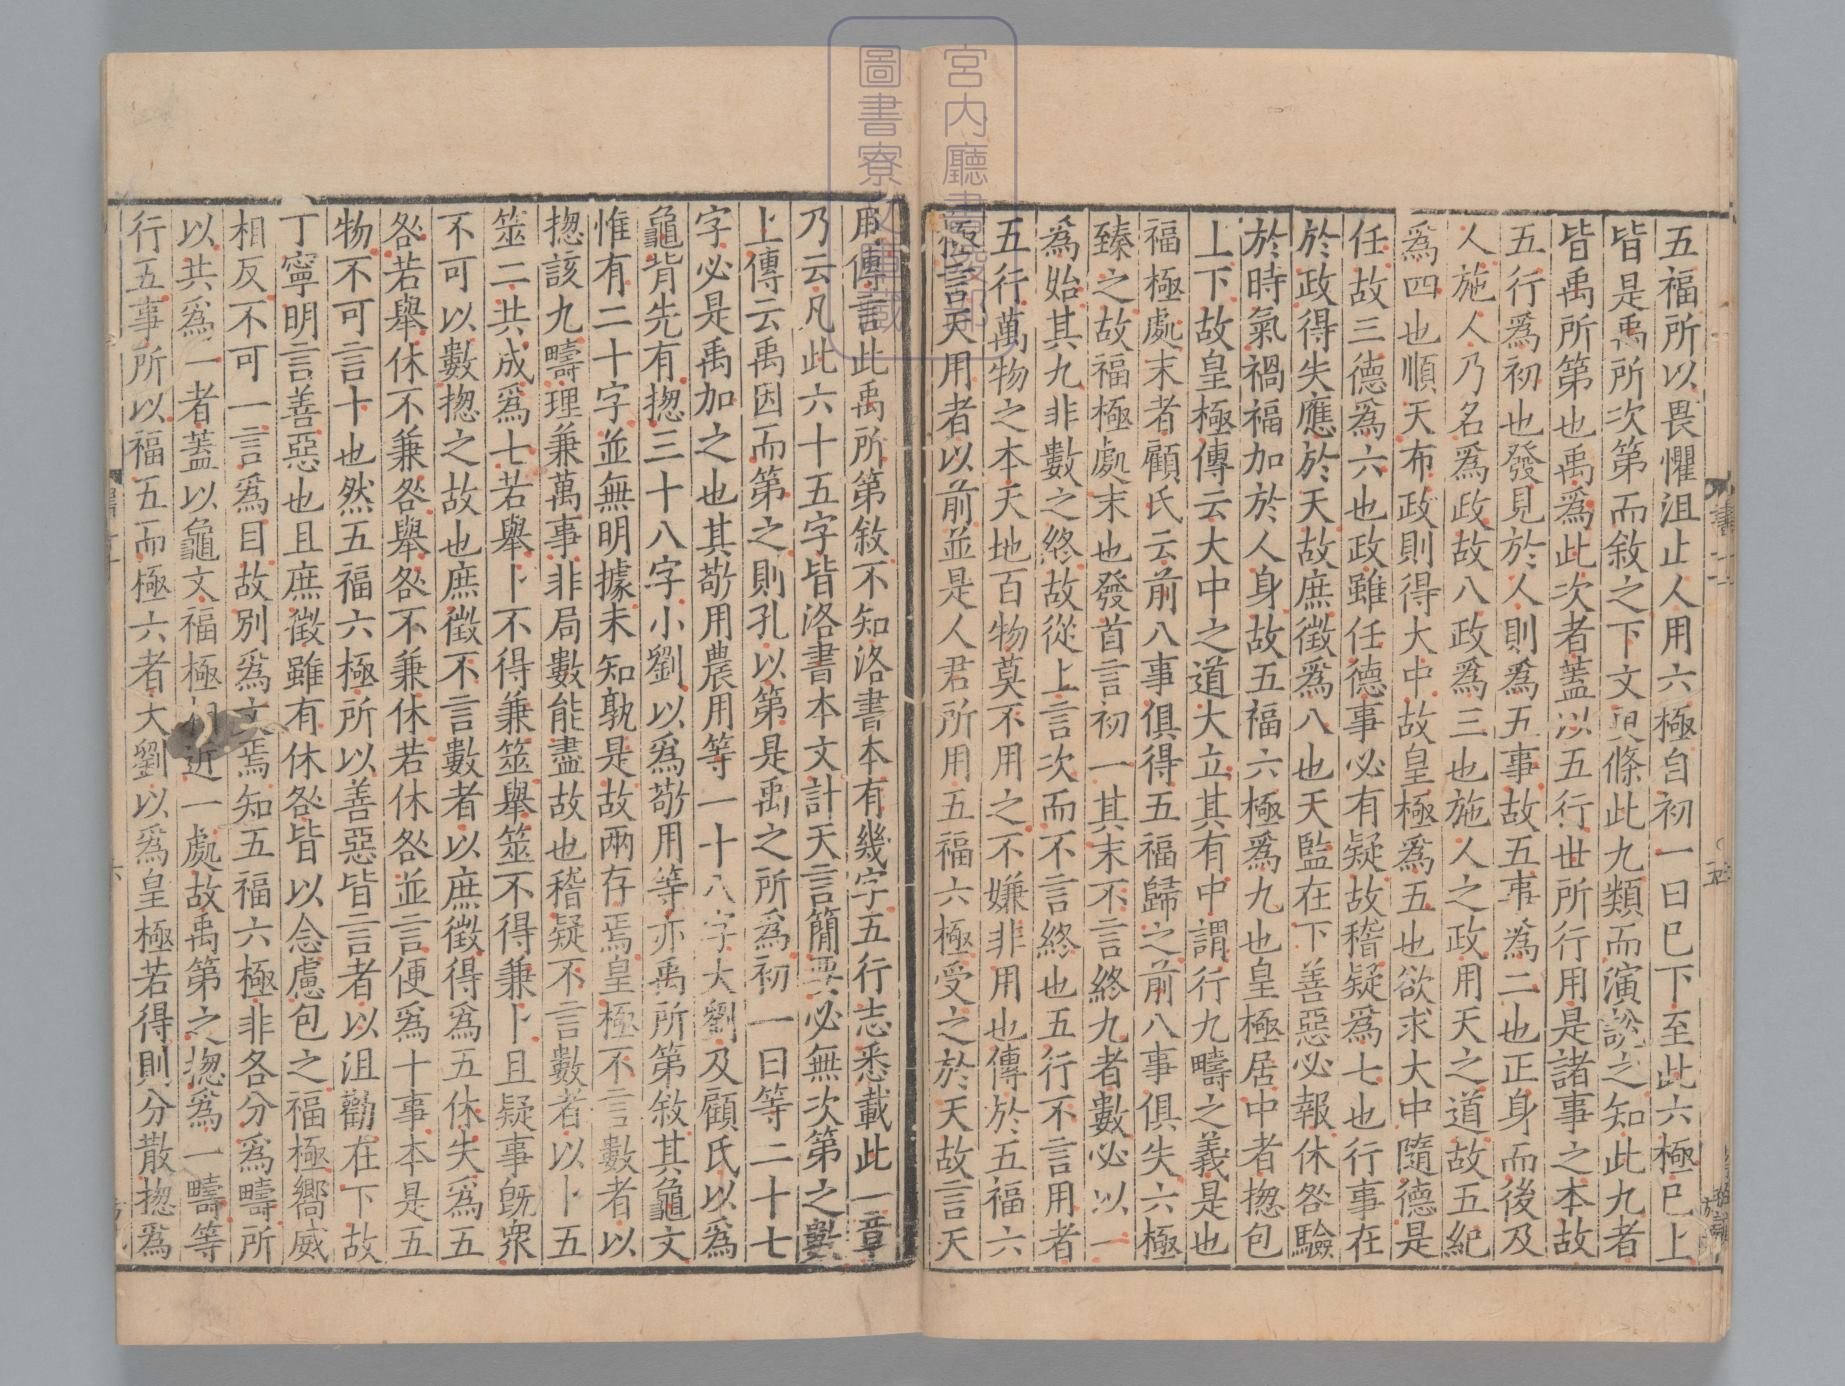 五福所以畏懼沮止人用六極自初一曰已下至此六極已上
皆是禹所次第而敘之下文更條此九類而演說之知此九者
皆禹所第也禹爲此次者蓋以五行世所行用是諸事之本故
五行爲初也發見於人則爲五事故五事爲二也正身而後及
人施人乃名爲政故八政爲三也施人之政用天之道故五紀
爲四也順天布政則得大中故皇極爲五也欲求大中隨德是
任故三德爲六也政雖任德事必有疑故稽疑爲七也行事在
於政得失應於天故庶徵爲八也天監在下善惡必報休咎驗
於時氣禍福加於人身故五福六極爲九也皇極居中者揔包
上下故皇極傳云大中之道大立其有中謂行九疇之義是也
福極處末者顧氏云前八事俱得五福歸之前八事俱失六極
臻之故福極處末也發首言初一其末不言終九者數必以一
爲始其九非數之終故從上言次而不言終也五行不言用者
五行萬物之本天地百物莫不用之不嫌非用也傳於五福六
極言天用者以前並是人君所用五福六極受之於天故言天
用傳言此禹所第敘不知洛書本有幾字五行志悉載此一章
乃云凡此六十五字皆洛書本文計天言簡要必無次第之數
上傳云禹因而第之則孔以第是禹之所爲初一曰等二十七
字必是禹加之也其敬用農用等一十八字大劉及顧氏以爲
龜背先有揔三十八字小劉以爲敬用等亦禹所第敘其龜文
惟有二十字並無明據未知孰是故兩存焉皇極不言數者以
揔該九疇理兼萬事非局數能盡故也稽疑不言數者以卜五
筮二共成爲七若舉卜不得兼筮舉筮不得兼卜且疑事既眾
不可以數揔之故也庶徵不言數者以庶徵得爲五休失爲五
咎若舉休不兼咎舉咎不兼休若休咎並言便爲十事本是五
物不可言十也然五福六極所以善惡皆言者以沮勸在下故
丁寧明言善惡也且庶徵雖有休咎皆以念慮包之福極嚮威
相反不可一言爲目故別爲文焉知五福六極非各分爲疇所
以共爲一者蓋以龜文福極相近一處故禹第之揔爲一疇等
行五事所以福五而極六者大劉以爲皇極若得則分散揔爲
宮内廳書陵部
圖書寮文庫藏